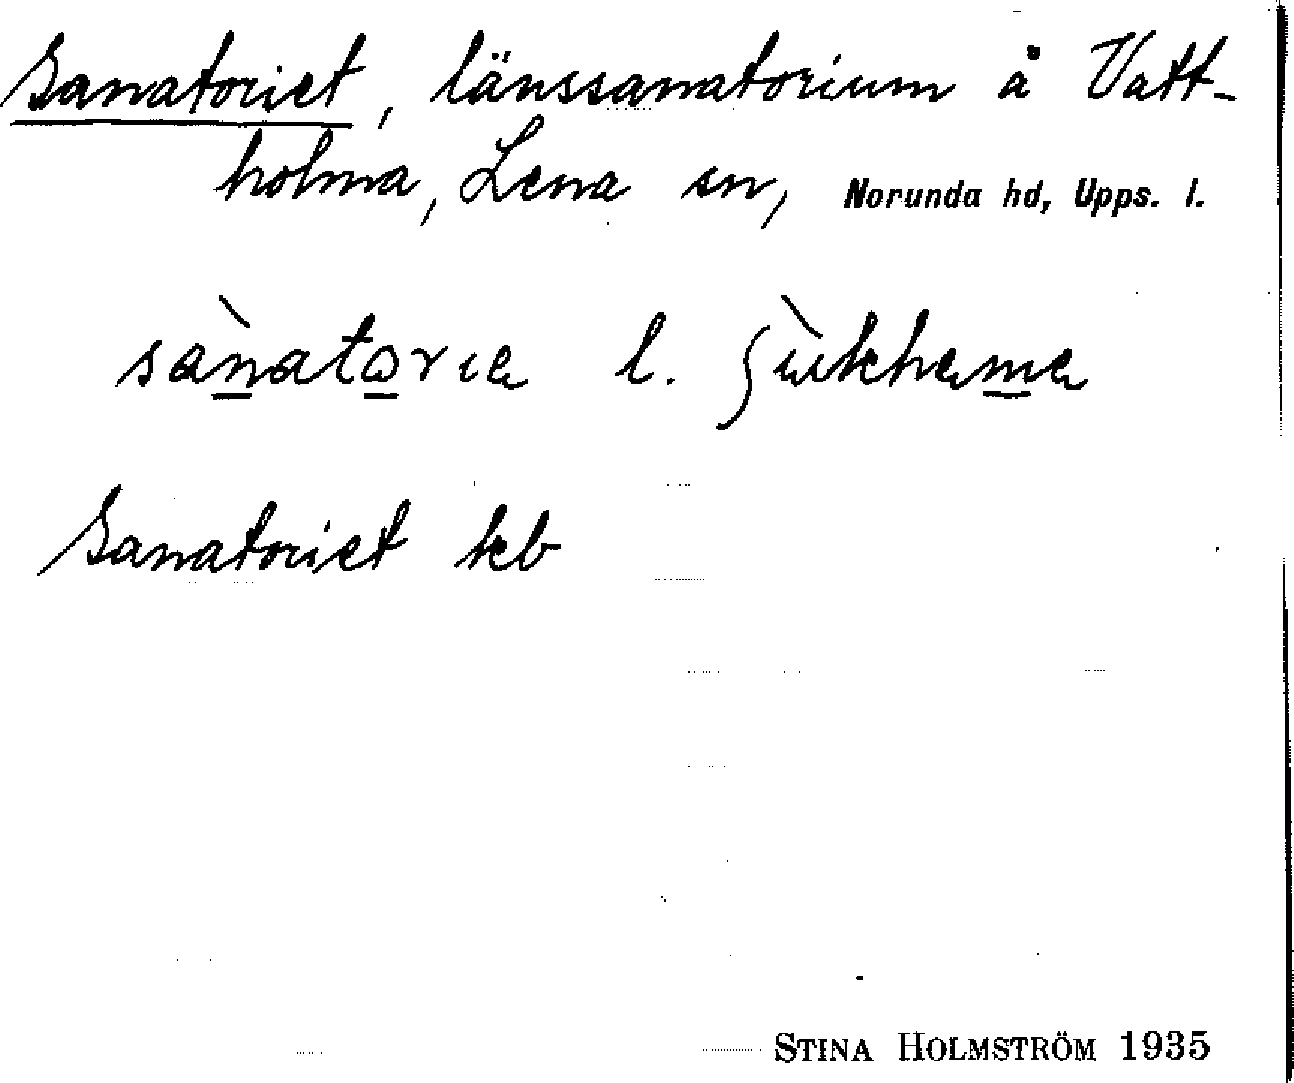 Sanatoriet, länssanatorium å Vatt-
holma, Lena sn, Norunda hd, Upps. l.
sànatoria l. ʃùkhema
Sanatoriet kb
STINA HOLMSTRÖM 1935